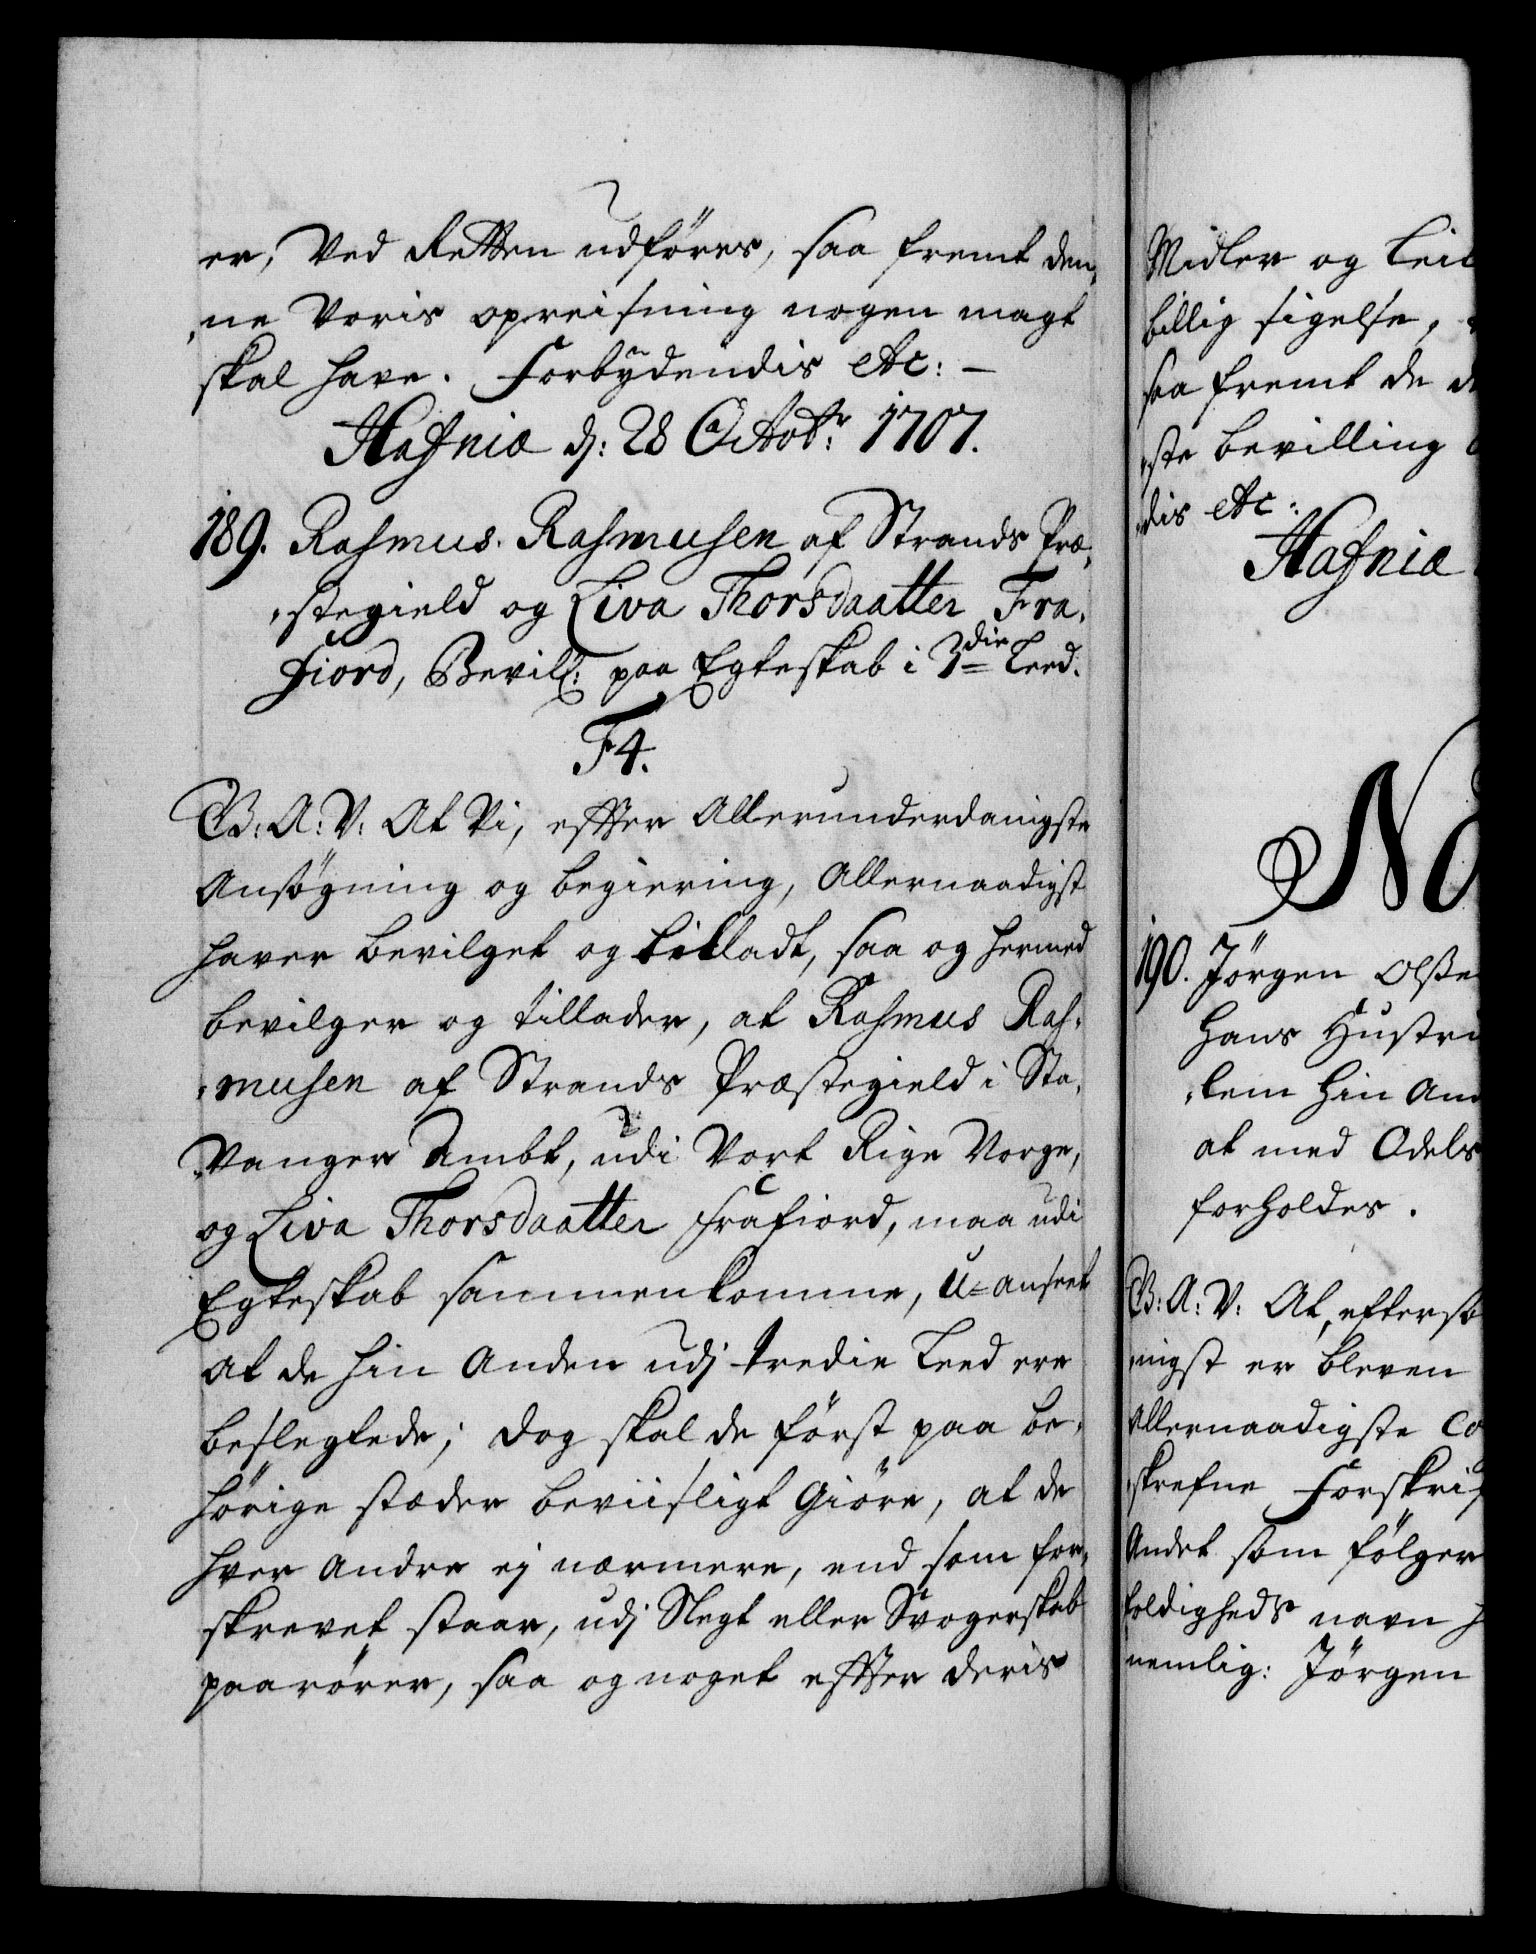 er, Ved Retten udföres, saa fremt den,
,ne Voris opreisning nogen magt
skal have. Forbydendis etc: –
Hafniæ d: 28 Octobr: 1707.
189. Rasmus Rasmusen af Strands Præ,
,stegield og Liva Thorsdaatter Fra,
fiord, Bevill: paa Egteskab i 3die Leed.
F4.
G: A: V: At Vi, effter Allerunderdanigste
Ansögning og begiering, Allernaadigst
haver bevilget og tilladt, saa og hermed
bevilger og tillader, at Rasmus Ras,
,musen af Strands Præstegield i Sta,
,vanger Ambt, udi Vort Rige Norge,
og Liva Thorsdaatter Frafiord, maa udi
Egteskab sammenkomme, U-anseet
at de hin Anden udj tredie Leed ere
beslegtede; dog skal de först paa be,
hörige stæder beviisligt Giöre, at de
hver andre ej nærmere, end som for,
skrevet staar, udj Slegt eller Svogerskab
paarörer, saa og noget effter deris
Midler og Leil
billig sigelse,
saa fremt de
,ste bevilling
,dis etc:
Hafniæ
No
190. Jörgen Olße
Hans Hustru
,lem hin An
at med Odels
forholdes.
G: A: V: At, eftersom
,ingst er bleven
Allernaadigste Co
,skrefne Forskrif
Andet som fölger
,holdigheds navn
nemlig: Jörgen